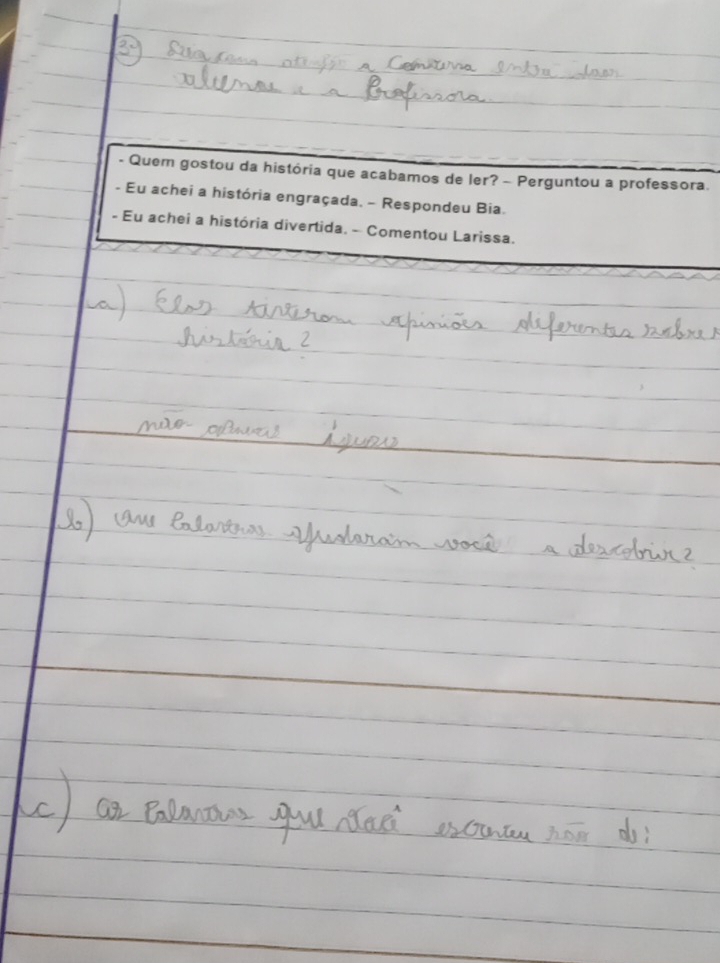 3ª) a Conversa entre
alunos e a Professora
- Quem gostou da história que acabamos de ler? – Perguntou a professora.
- Eu achei a história engraçada. – Respondeu Bia.
- Eu achei a história divertida. – Comentou Larissa.
a) Elas tiveram opiniões diferentes sobre
história?
não iguais
b) que Palavras ajudaram você a descobrir?
c) as Palavras que você escreveu são de: